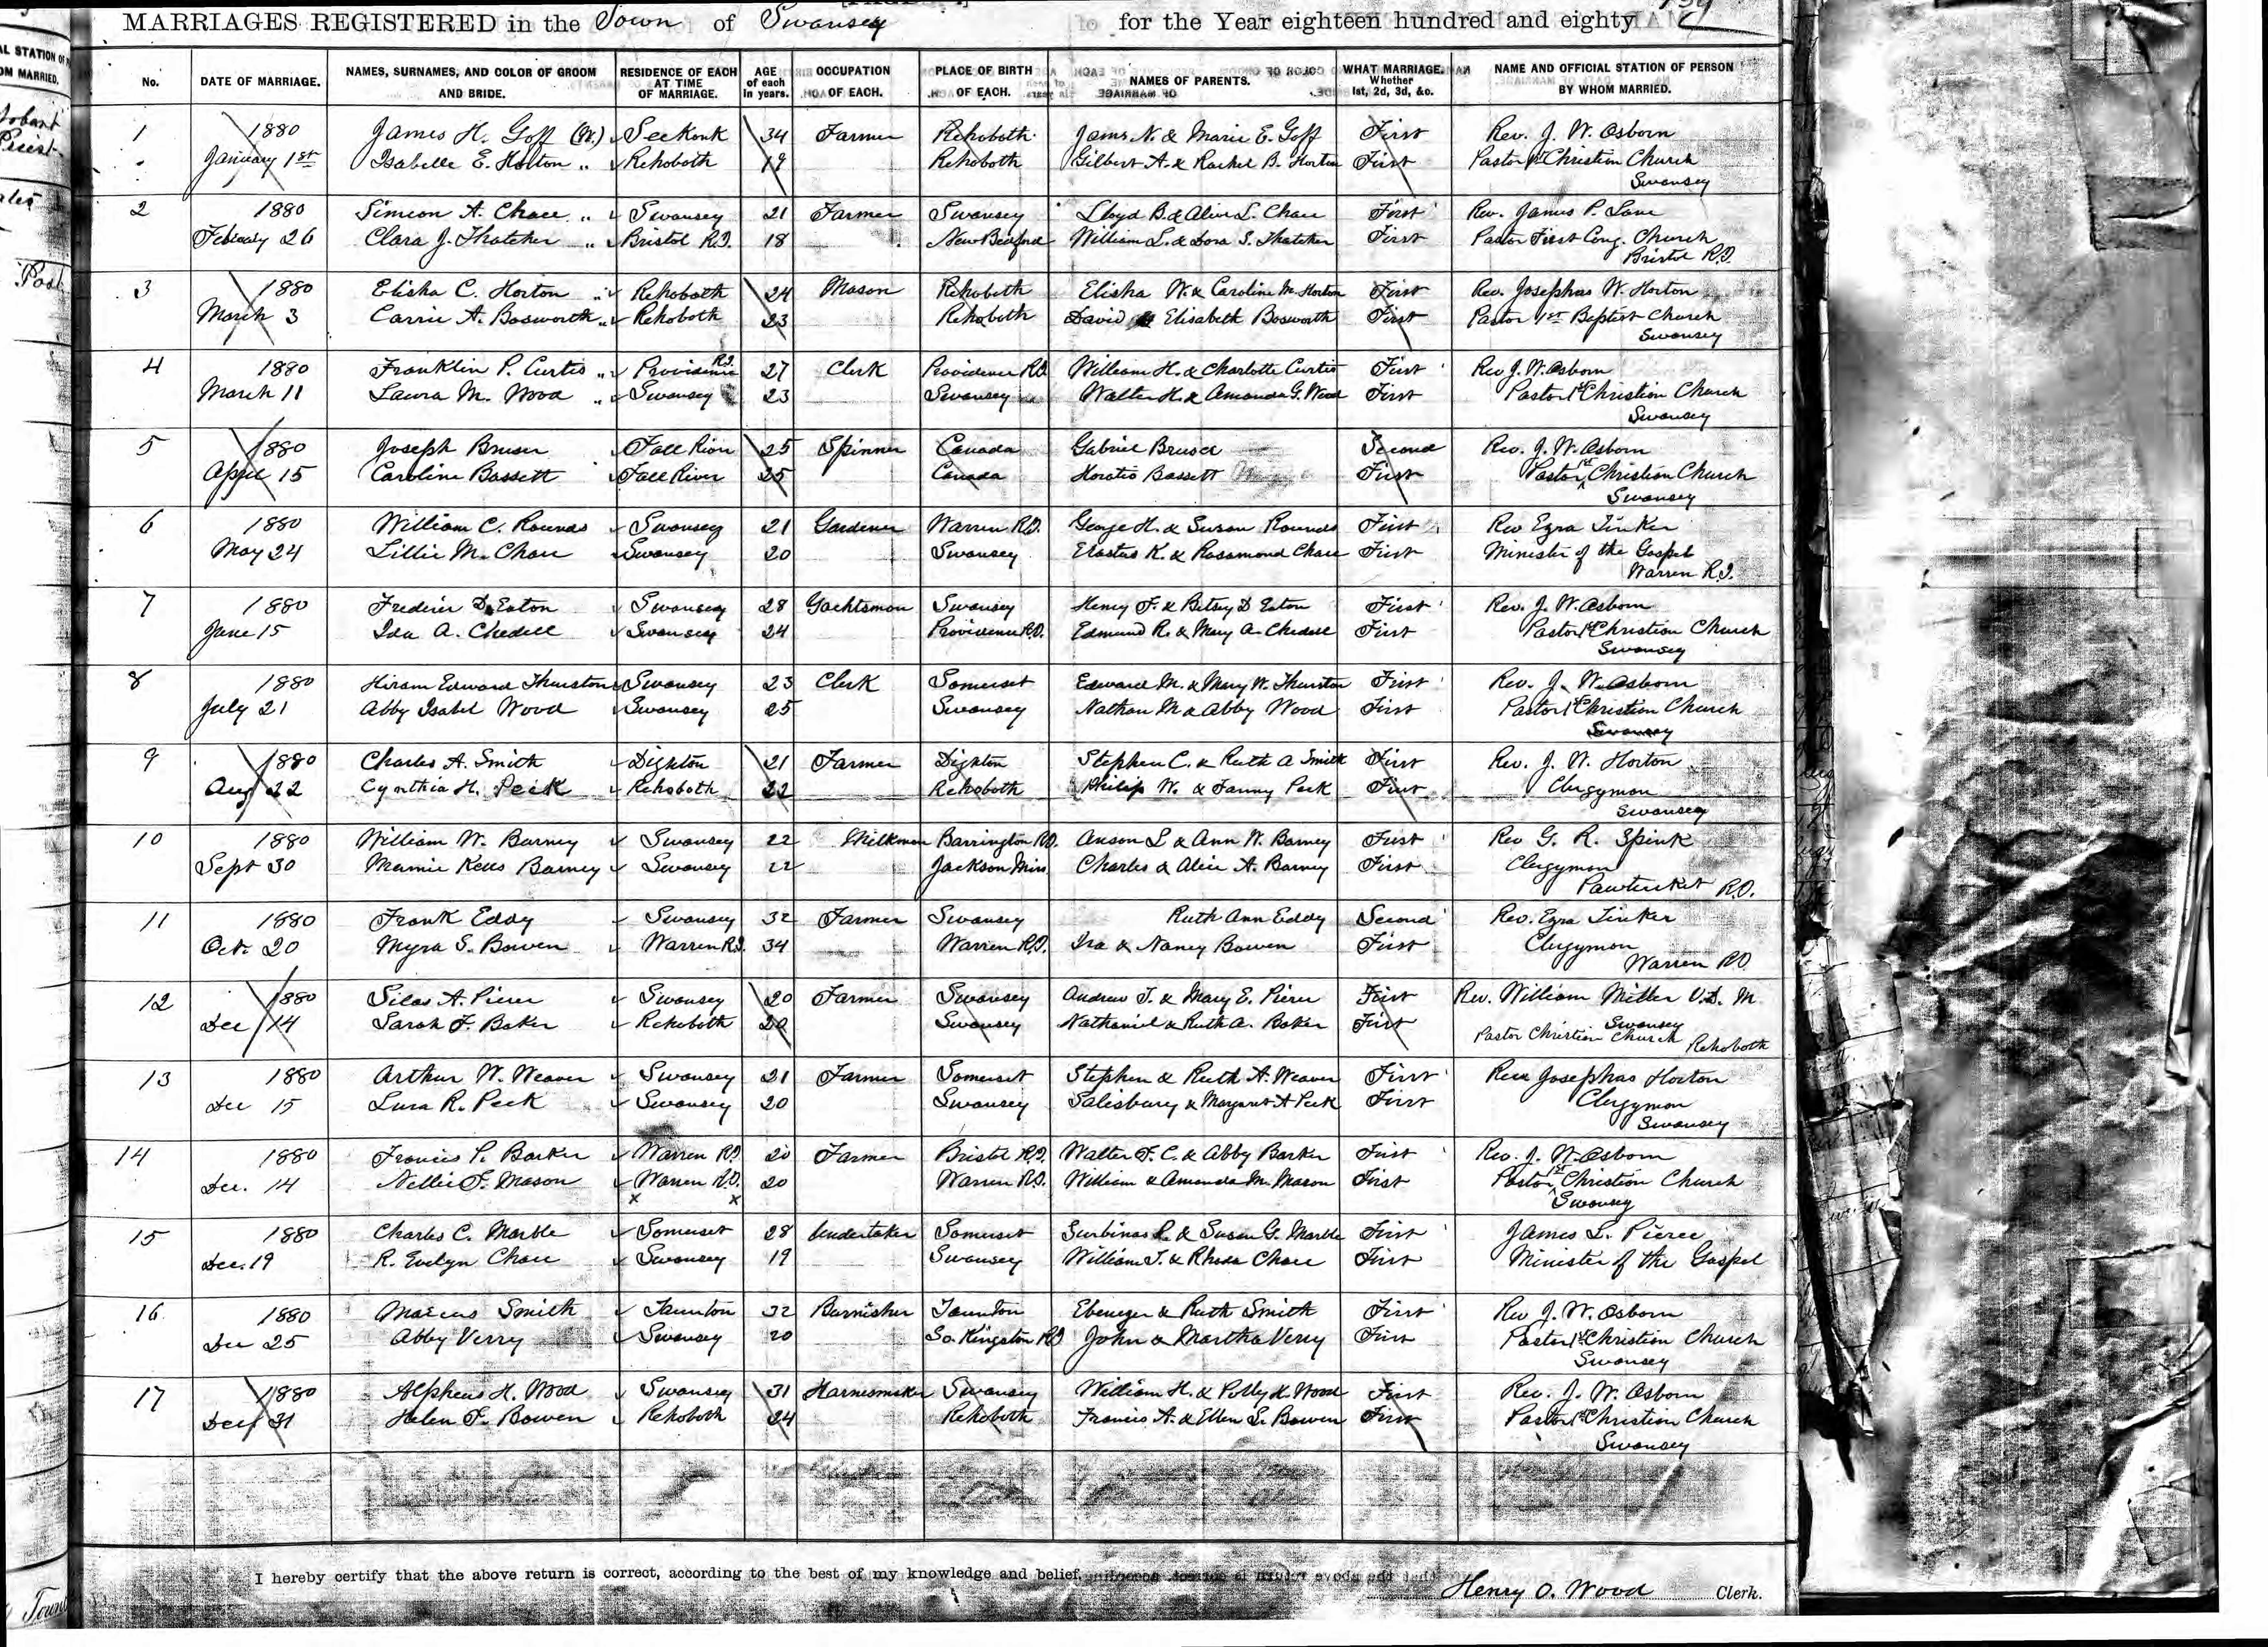 MARRIAGES REGISTERED in the Town of Swansey for the Year eighteen hundred and eighty
No. DATE OF MARRIAGE. NAMES, SURNAMES, AND COLOR OF GROOM AND BRIDE. RESIDENCE OF EACH AT TIME OF MARRIAGE. AGE of each in years. OCCUPATION OF EACH. PLACE OF BIRTH OF EACH. NAMES OF PARENTS. WHAT MARRIAGE. Whether 1st, 2d, 3d, &c. NAME AND OFFICIAL STATION OF PERSON BY WHOM MARRIED.
1 1880 James H. Goff (W.) Seekonk 34 Farmer Rehoboth James N. & Maria E. Goff First Rev. J. W. Osborn
January 1st Isabelle E. Horton " Rehoboth 19 Rehoboth Gilbert A. & Rachel B. Horton First Pastor 1st Christian Church
Swansey
2 1880 Simeon A. Chace " Swansey 21 Farmer Swansey Lloyd B. & Alive L. Chace First Rev. James P. Lane
February 26 Clara J. Thatcher " Bristol R.I. 18 New Bedford William L. & Dora S. Thatcher First Pastor First Cong. Church
Bristol R.I.
3 1880 Elisha C. Horton " Rehoboth 24 Mason Rehoboth Elisha W. & Caroline M. Horton First Rev. Josephas W. Horton
March 3 Carrie A. Bosworth " Rehoboth 23 Rehoboth David Elisabeth Bosworth First Pastor 1st Baptist Church
Swansey
4 1880 Franklin P. Curtis " Providence R.I. 27 Clerk Providence R.I. William H. & Charlotte Curtis First Rev J. W. Osborn
March 11 Laura M. Wood " Swansey 23 Swansey Walter H. & Amanda G. Wood First Pastor 1st Christian Church
Swansey
5 1880 Joseph Fall River 25 Spinner Canada Gabriel Second Rev. J. W. Osborn
April 15 Caroline Bassett Fall River 25 Canada Horatio Bassett First Pastor 1st Christian Church
Swansey
6 1880 William C. Rounds Swansey 21 Gardener Warren R.I. George H. & Susan Rounds First Rev Ezra Tinker
May 24 Lillie M. Chace Swansey 20 Swansey Erastus K. & Rosamond Chace First Minister of the Gospel
Warren R.I.
7 1880 Frederic D. Eaton Swansey 28 Yachtsman Swansey Henry F. & Betsey D Eaton First Rev. J. W. Osborn
June 15 Ida A. Chedell Swansey 24 Providence R.I. Edmund R. & Mary A. Chedell First Pastor 1st Christian Church
Swansey
8 1880 Hiram Edward Thurston Swansey 23 Clerk Somerset Edward M. & Mary W. Thurston First Rev. J. W. Osborn
July 21 Abby Isabel Wood Swansey 25 Swansey Nathan M & Abby Wood First Pastor 1st Christian Church
Swansey
9 1880 Charles A. Smith Dighton 21 Farmer Dighton Stephen C. & Ruth A Smith First Rev. J. W. Horton
Aug 22 Cynthia H. Peck Rehoboth 22 Rehoboth Philip W. & Fanny Peck First Clergyman
Swansey
10 1880 William W. Barney Swansey 22 Milkman Barrington R.I. Anson L & Ann W. Barney First Rev G. R. Spink
Sept 30 Mamie Kells Barney Swansey 22 Jackson Miss Charles & Alice A. Barney First Clergyman
Pawtucket R.I.
11 1880 Frank Eddy Swansey 32 Farmer Swansey Ruth Ann Eddy Second Rev. Ezra Tinker
Oct. 20 Myra S. Bowen Warren R.I. 34 Warren R.I. Ira & Nancy Bowen First Clergyman
Warren R.I.
12 1880 Silas A. Pierce Swansey 20 Farmer Swansey Andrew J. & Mary E. Pierce First Rev. William Miller V.D.M.
Dec 14 Sarah F. Baker Rehoboth 20 Swansey Nathaniel & Ruth A. Baker First Swansey
Pastor Christian Church Rehoboth
13 1880 Arthur W. Weaver Swansey 21 Farmer Somerset Stephen & Ruth A. Weaver First Rev Josephas Horton
Dec 15 Lura R. Peck Swansey 20 Swansey Salisbury & Margaret A Peck First Clergyman
Swansey
14 1880 Francis P. Barker Warren R.I. 20 Farmer Bristol R.I. Walter F. C. & Abby Barker First Rev. J. W. Osborn
Dec. 14 Nellie F. Mason Warren R.I. 20 Warren R.I. William & Amanda M. Mason First Pastor 1st Christian Church
x x Swansey
15 1880 Charles C. Marble Somerset 28 Undertaker Somerset Surbinas R. & Susan G. Marble First James L. Pierce
Dec. 19 R. Evelyn Chace Swansey 19 Swansey William T. & Rhoda Chace First Minister of the Gospel
16 1880 Marcus Smith Taunton 32 Burnisher Taunton Ebenezer & Ruth Smith First Rev J. W. Osborn
Dec 25 Abby Verry Swansey 20 So. Kingston R.I. John & Martha Verry First Pastor 1st Christian Church
Swansey
17 1880 Alpheus H. Wood Swansey 31 Harnessmaker Swansey William H. & Polly K. Wood First Rev. J. W. Osborn
Dec 31 Helen F. Bowen Rehoboth 24 Rehoboth Francis A. & Ellen L. Bowen First Pastor 1st Christian Church
Swansey
I hereby certify that the above return is correct, according to the best of my knowledge and belief,
Henry O. Wood Clerk.